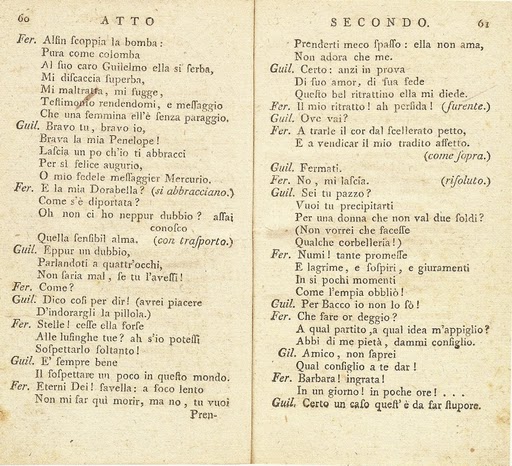 60 ATTO
Fer. Alfin ſcoppia la bomba:
Pura come colomba
Al ſuo caro Guilelmo ella si ſerba,
Mi diſcaccia ſuperba,
Mi maltratta, mi fugge,
Teſtimonio rendendomi, e meſſaggio
Che una femmina ell'è ſenza paraggio.
Guil. Bravo tu, bravo io,
Brava la mia Penelope!
Laſcia un po ch'io ti abbracci
Per sì felice augurio,
O mio fedele meſſaggier Mercurio.
Fer. E la mia Dorabella? (si abbracciano.)
Come s'è diportata?
Oh non ci ho neppur dubbio? aſſai
conoſco
Quella ſenſibil alma. (con traſporto.)
Guil. Eppur un dubbio,
Parlandoti a quattr'occhi,
Non ſaria mal, ſe tu l'aveſſi!
Fer. Come?
Guil. Dico coſì per dir! (avrei piacere
D'indorargli la pillola.)
Fer. Stelle! ceſſe ella forſe
Alle luſinghe tue? ah s'io poteſſi
Soſpettarlo ſoltanto!
Guil. E' ſempre bene
Il ſoſpettare un poco in queſto mondo.
Fer. Eterni Dei! favella: a foco lento
Non mi far quì morir, ma no, tu vuoi
Pren-
SECONDO. 61
Prenderti meco ſpaſſo: ella non ama,
Non adora che me.
Guil. Certo: anzi in prova
Di ſuo amor, di ſua fede
Queſto bel ritrattino ella mi diede.
Fer. Il mio ritratto! ah perfida! (furente.)
Guil. Ove vai?
Fer. A trarle il cor dal ſcellerato petto,
E a vendicar il mio tradito affetto.
(come ſopra.)
Guil. Fermati.
Fer. No, mi laſcia. (riſoluto.)
Guil. Sei tu pazzo?
Vuoi tu precipitarti
Per una donna che non val due ſoldi?
(Non vorrei che faceſſe
Qualche corbelleria!)
Fer. Numi! tante promeſſe
E lagrime, e ſoſpiri, e giuramenti
In sì pochi momenti
Come l'empia obbliò!
Guil. Per Bacco io non lo ſò!
Fer. Che fare or deggio?
A qual partito, a qual idea m'appiglio?
Abbi di me pietà, dammi conſiglio.
Gil. Amico, non ſaprei
Qual conſiglio a te dar!
Fer. Barbara! ingrata!
In un giorno! in poche ore! . . .
Guil. Certo un caſo queſt'è da far ſtupore.